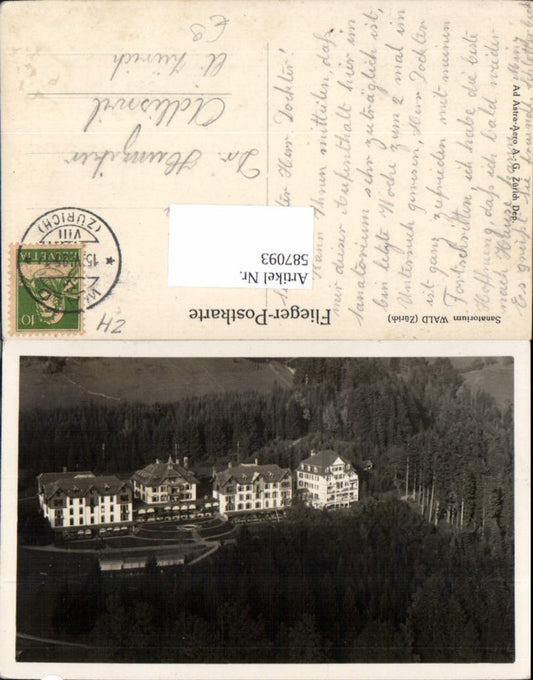 Sanatorium WALD (Zürich)
Ad Astra-Aero A.-G. Zürich Dep.
Flieger-Postkarte
Herr Dochter!
Kann Ihnen mitteilen, daß
mir dieser Aufenthalt hier im
Sanatorium sehr zuträglich ist,
bin letzte Woche zum 2 mal im
Untersuch gewesen, Herr Dochter
ist ganz zufrieden mit meinen
Fortschritten, ich habe die beste
Hoffnung, daß ich bald wieder
nach Hause
Es grüßt Sie freundl.
Artikel Nr.
587093
HELVETIA
10
(ZÜRICH)
VIII
15.
ZH
Dr.
Adliswil
Kt. Zürich